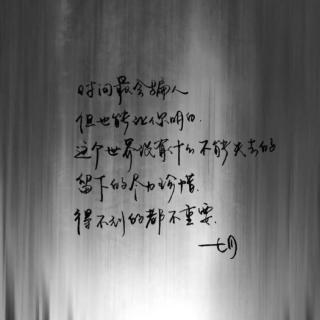 时间最会骗人
但也能让你明白.
这个世界没有什么不能失去的
留下的尽力珍惜.
得不到的都不重要.
一七月